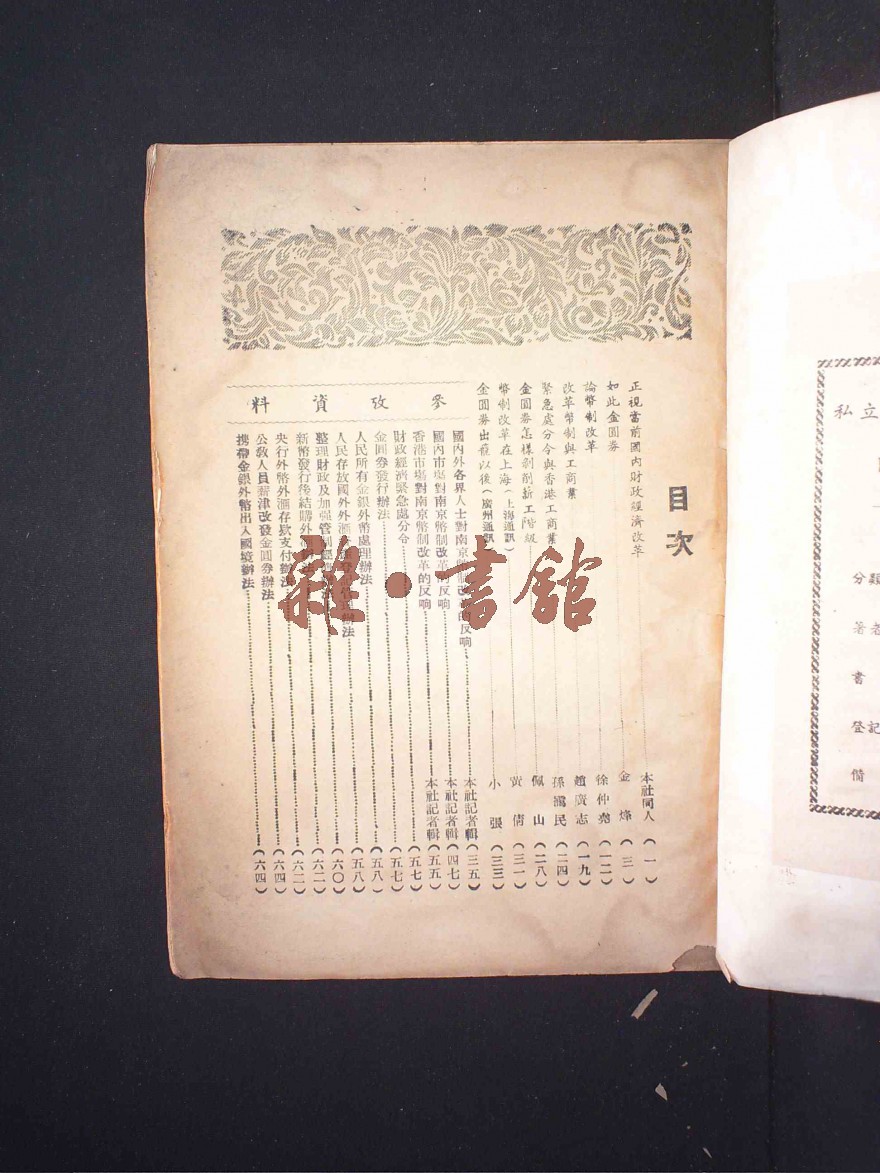 目次
正視當前國內財政經濟改革 本社同人（一）
如此金圓券 金烽（三）
論幣制改革 徐仲堯（一二）
改革幣制與工商業 趙廣志（一九）
緊急處分令與香港工商業 孫鴻民（二四）
金圓券怎樣剝削薪工階級 佩山（二八）
幣制改革在上海（上海通訊） 黃倩（三一）
金圓券出籠以後（廣州通訊） 小張（三三）
參攷資料
國內外各界人士對南京幣制改革的反响 本社記者輯（三五）
國內市場對南京幣制改革的反响 本社記者輯（四七）
香港市場對南京幣制改革的反响 本社記者輯（五五）
財政經濟緊急處分令（五七）
金圓券發行辦法（五七）
人民所有金銀外幣處理辦法（五八）
人民存放國外外滙登記辦法（五八）
整理財政及加强管制經濟辦法（六〇）
新幣發行後結購外滙辦法（六二）
央行外幣外滙存款支付辦法（六二）
公敎人員薪津改發金圓券辦法（六四）
携帶金銀外幣出入國境辦法（六四）
私立
分類
著者
書
登記
備
雜·書館